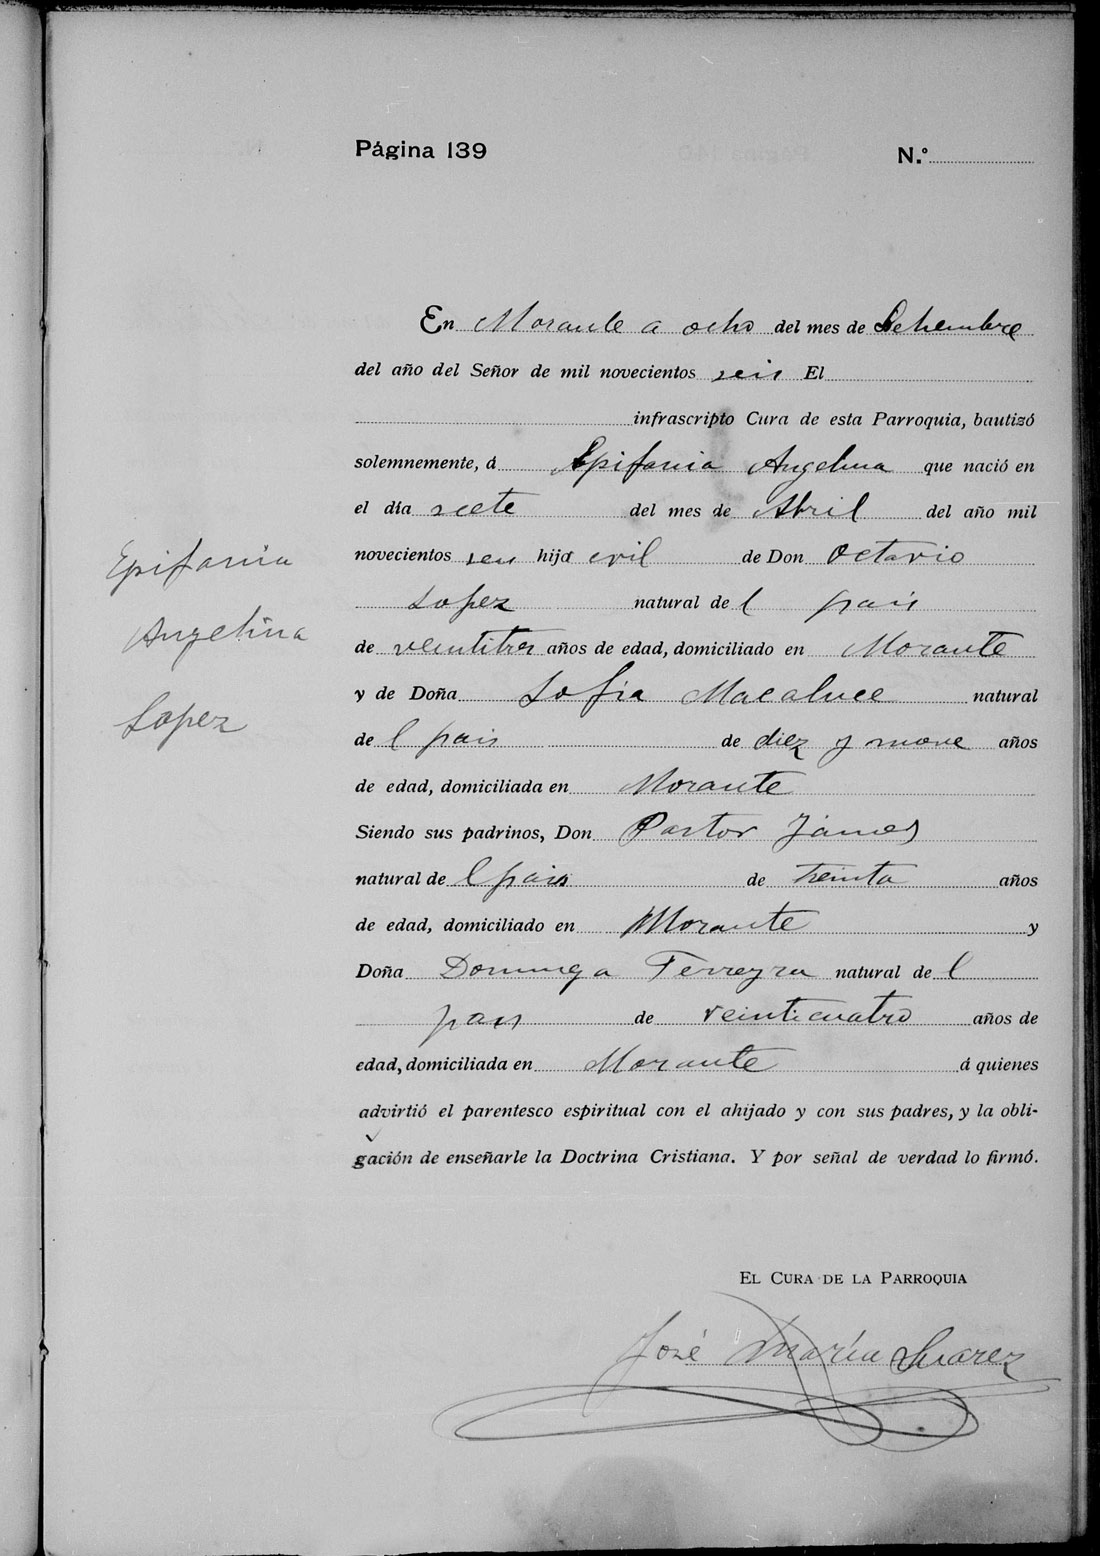 Página 139
N.°
En Morante a ocho del mes de Setiembre
del año del Señor de mil novecientos seis El
infrascripto Cura de esta Parroquia, bautizó
solemnemente, á Epifania Angelina que nació en
el día siete del mes de Abril del año mil
novecientos seis hija civil de Don Octavio
Lopez natural del pais
de veintitres años de edad, domiciliado en Morante
y de Doña Sofia Macaluce natural
del pais de diez y nueve años
de edad, domiciliada en Morante
Siendo sus padrinos, Don Pastor James
natural del pais de treinta años
de edad, domiciliado en Morante y
Doña Dominga Ferreyra natural del
pais de veinticuatro años de
edad, domiciliada en Morante á quienes
advirtió el parentesco espiritual con el ahijado y con sus padres, y la obli-
gación de enseñarle la Doctrina Cristiana. Y por señal de verdad lo firmó.
Epifania
Angelina
Lopez
EL CURA DE LA PARROQUIA
José María Suarez